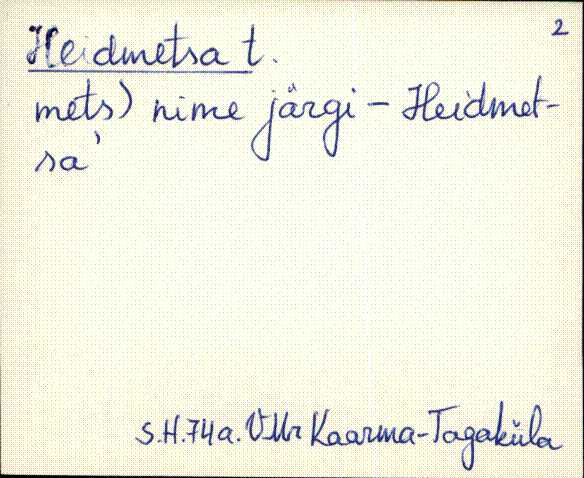 2
Heidmetsa t.
mets) nime järgi - Heidmet-
sa'
S.H.74a. V.Mr Kaarma-Tagaküla